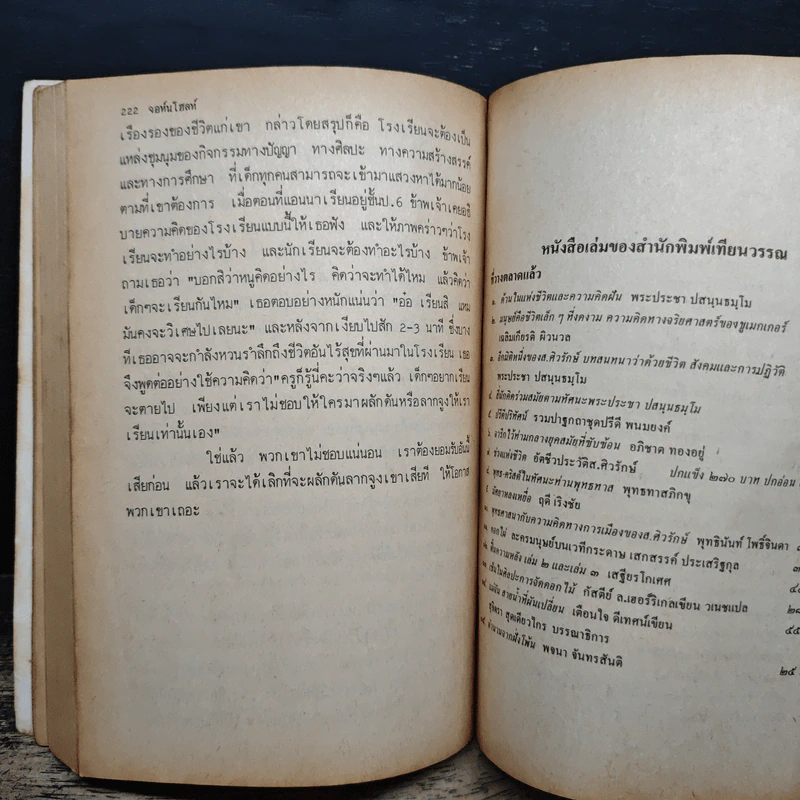 222 จอห์นโฮลท์
เรื่องรองของชีวิตแก่เขา กล่าวโดยสรุปก็คือ โรงเรียนจะต้องเป็น
แหล่งชุมนุมของกิจกรรมทางปัญญา ทางศิลปะ ทางความสร้างสรรค์
และทางการศึกษา ที่เด็กทุกคนสามารถจะเข้ามาแสวงหาได้มากน้อย
ตามที่เขาต้องการ เมื่อตอนที่แอนนาเรียนอยู่ชั้นป.6 ข้าพเจ้าเคยอธิ
บายความคิดของโรงเรียนแบบนี้ให้เธอฟัง และให้ภาพคร่าวๆว่าโรง
เรียนจะทำอย่างไรบ้าง และนักเรียนจะต้องทำอะไรบ้าง ข้าพเจ้า
ถามเธอว่า "บอกสิว่าหนูคิดอย่างไร คิดว่าจะทำได้ไหม แล้วคิดว่า
เด็กๆจะเรียนกันไหม" เธอตอบอย่างหนักแน่นว่า "อ๋อ เรียนสิ แหม
มันคงจะวิเศษไปเลยนะ" และหลังจากเงียบไปสัก 2-3 นาที ซึ่งบาง
ทีเธออาจจะกำลังหวนรำลึกถึงชีวิตอันไร้สุขที่ผ่านมาในโรงเรียน เธอ
จึงพูดต่ออย่างใช้ความคิดว่า"ครูก็รู้นี่คะว่าจริงๆแล้ว เด็กๆอยากเรียน
จะตายไป เพียงแต่เราไม่ชอบให้ใครมาผลักดันหรือลากจูงให้เรา
เรียนเท่านั้นเอง"
ใช่แล้ว พวกเขาไม่ชอบแน่นอน เราต้องยอมรับอันนี้
เสียก่อน แล้วเราจะได้เลิกที่จะผลักดันลากจูงเขาเสียที ให้โอกาส
พวกเขาเถอะ
หนังสือเล่มของสำนักพิมพ์เทียนวรรณ
ที่วางตลาดแล้ว
๑. ด้านในแห่งชีวิตและความคิดฝัน พระประชา ปสนฺนธมฺโม
๒. มนุษย์คือชีวิตเล็ก ๆ ที่งดงาม ความคิดทางจริยศาสตร์ของชูเมกเกอร์
เฉลิมเกียรติ ผิวนวล
๓. อีกมิติหนึ่งของส.ศิวรักษ์ บทสนทนาว่าด้วยชีวิต สังคมและการปฏิวัติ
พระประชา ปสนฺนธมฺโม
๔. สันติภาพร่วมสมัยตามทัศนะพระประชา ปสนฺนธมฺโม
๕. ปรีดีปริทัศน์ รวมปาฐกถาชุดปรีดี พนมยงค์
๖. จารึกไว้ท่ามกลางยุคสมัยที่ซับซ้อน อภิชาต ทองอยู่
๗. ช่วงแห่งชีวิต อัตชีวประวัติส.ศิวรักษ์ ปกแข็ง ๒๗๐ บาท ปกอ่อน
๘. พุทธ-คริสต์ในทัศนะท่านพุทธทาส พุทธทาสภิกขุ
ฤดี เริงชัย
๑๐. พุทธศาสนากับความคิดทางการเมืองของส.ศิวรักษ์ พุทธินันท์ โพธิ์จินดา
๑๑. ดอกไม้ ละครมนุษย์บนเวทีกระดาษ เสกสรรค์ ประเสริฐกุล
๑๒. ฟื้นความหลัง เล่ม ๒ และเล่ม ๓ เสฐียรโกเศศ
๑๓. เซ็นในศิลปะการจัดดอกไม้ กัสตีย์ ล.เฮอร์ริเกลเขียน วเนชแปล
๑๔. แม่จัน สายน้ำที่ผันเปลี่ยน เตือนใจ ดีเทศน์เขียน
สุจิตรา สุดเดียวไกร บรรณาธิการ
๑๕. ตำนานจากฝั่งโพ้น พจนา จันทรสันติ
๒๕